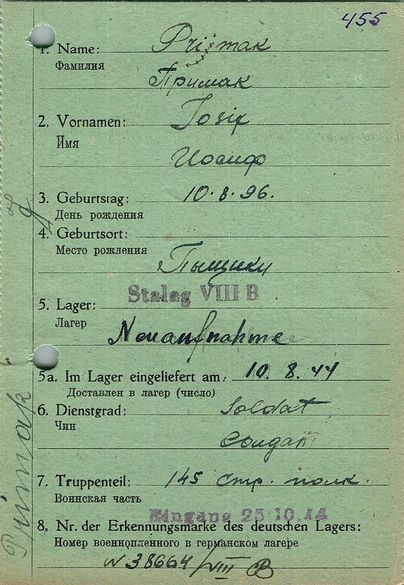 455
1. Name: Prijmak
Фамилия
Примак
2. Vornamen: Josif
Имя
Иосиф
3. Geburtstag: 10.8.96.
День рождения
4. Geburtsort:
Место рождения
Пыщики
Stalag VIII B
5. Lager:
Лагер
Neuaufnahme
5a. Im Lager eingeliefert am: 10.8.44
Доставлен в лагер (число)
6. Dienstgrad: Soldat
Чин
Солдат
7. Truppenteil: 145 стр. полк.
Воинская часть
Eingang 25.10.44
8. Nr. der Erkennungsmarke des deutschen Lagers:
Номер военнопленного в германском лагере
N 38664/VIII B
Primak J